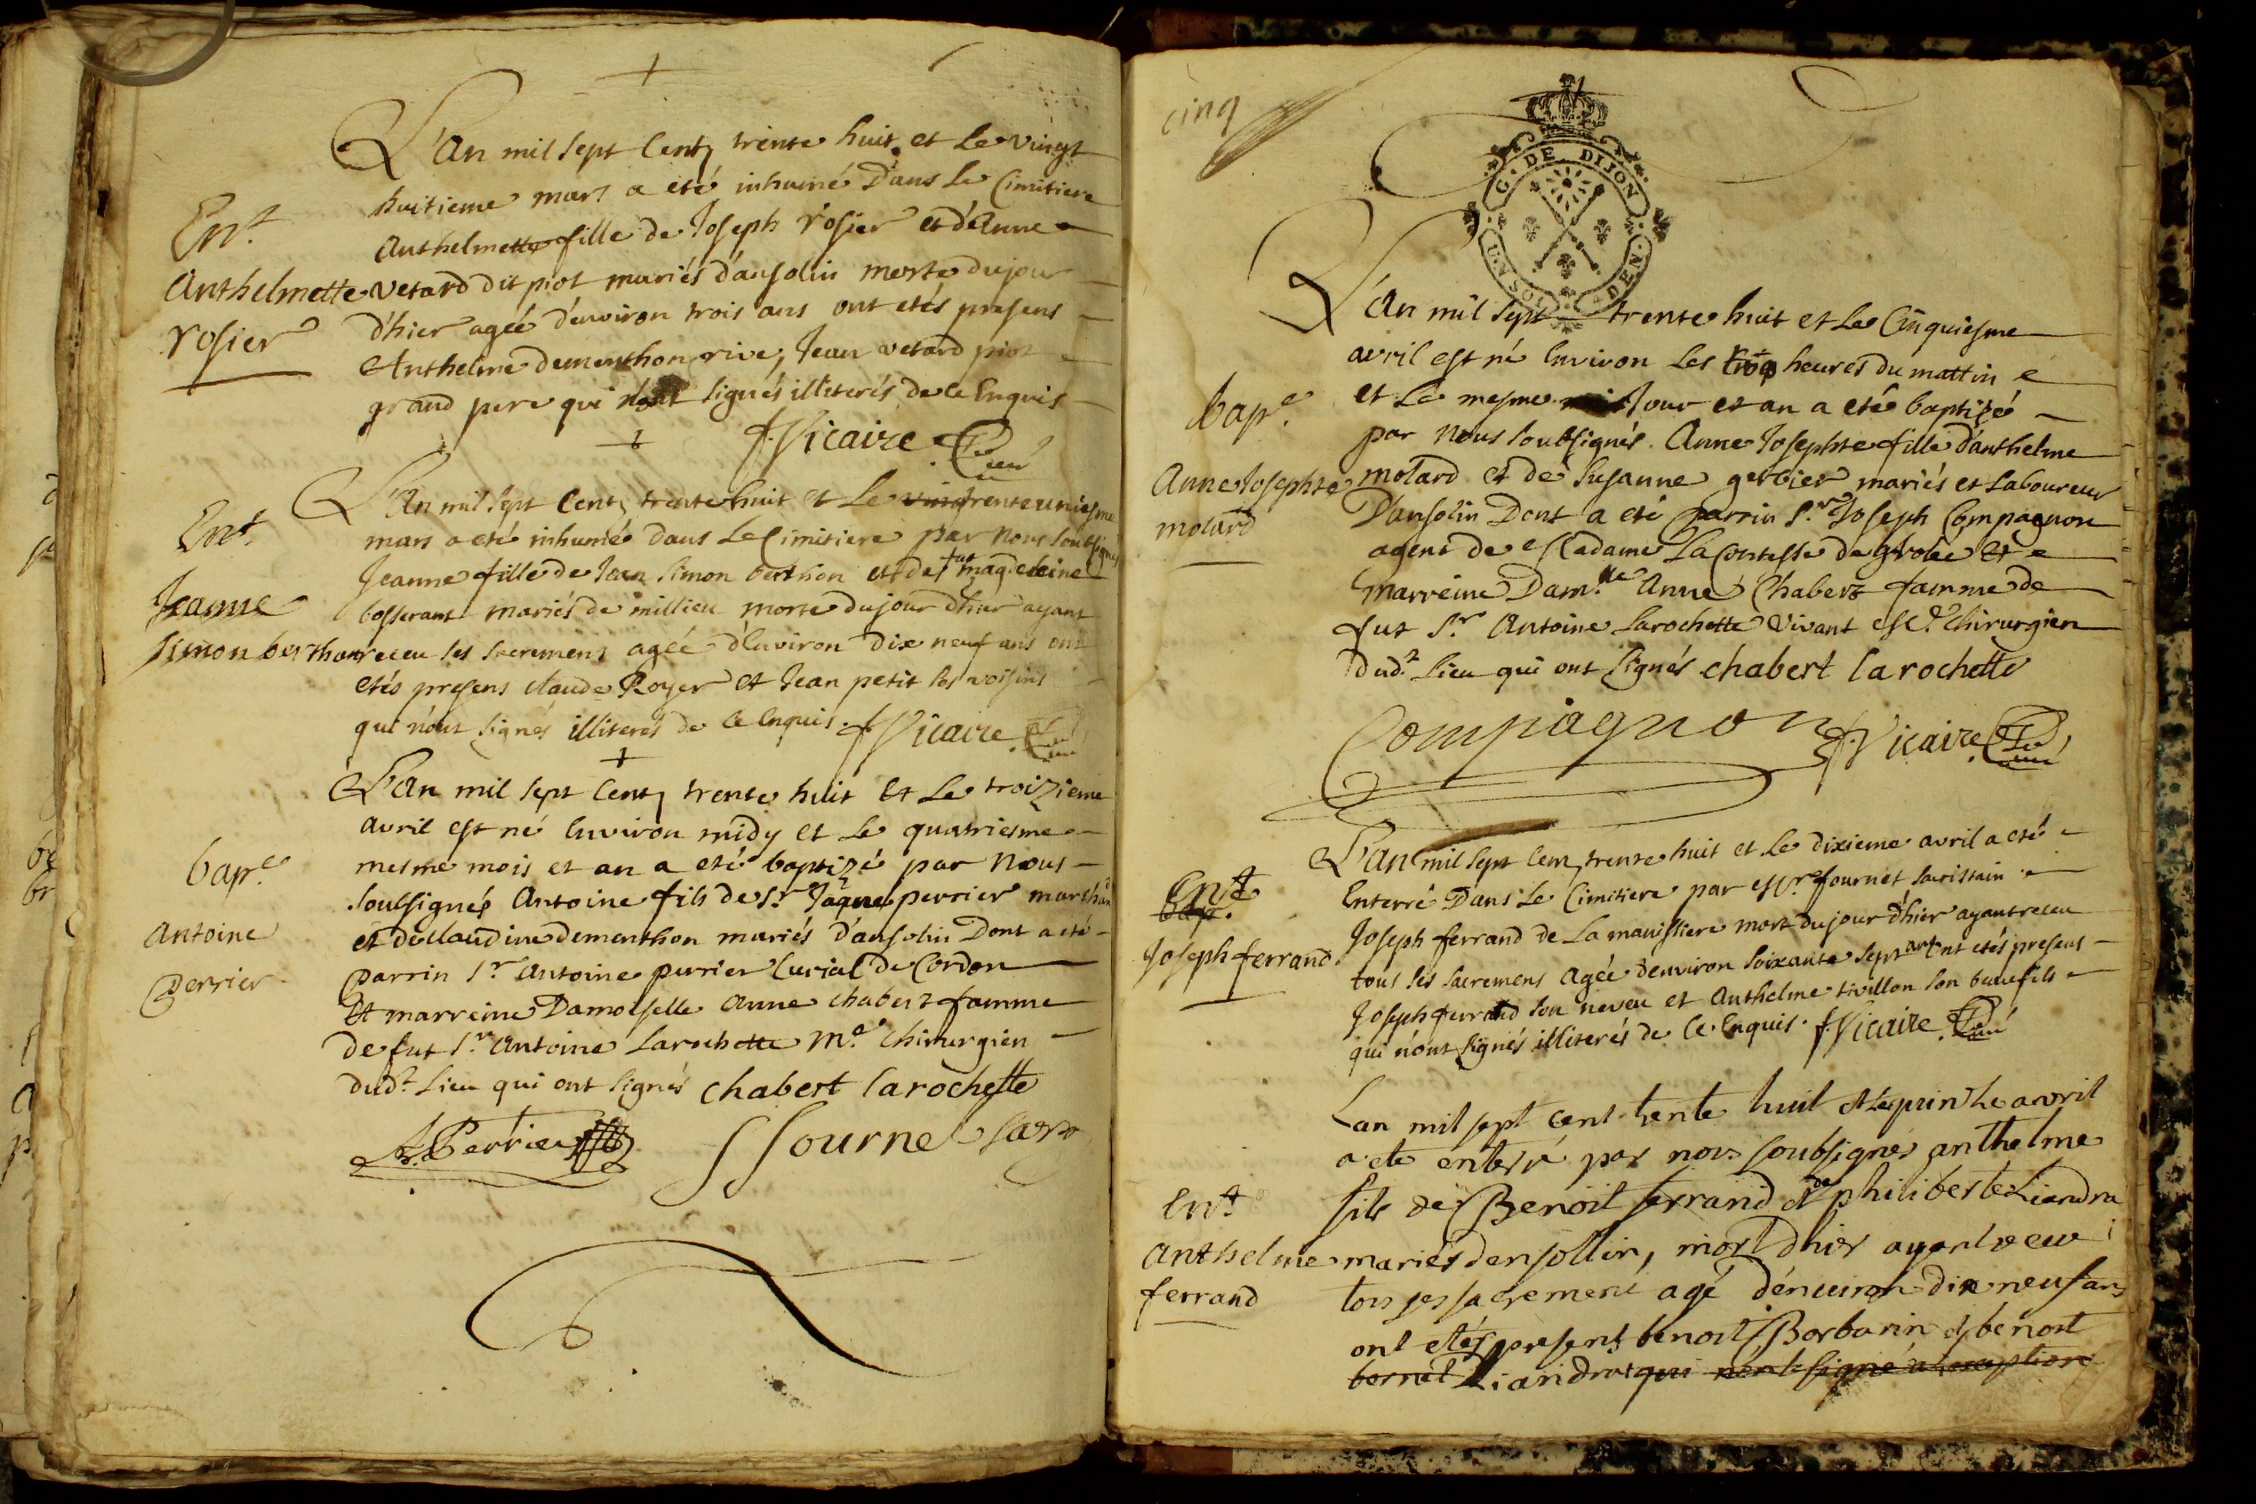 L'An mil sept Cent trente huit et Le vingt
huitieme mars a eté inhumé Dans Le Cimitiere
Ent.
Anthelmette fille de Joseph rosier et d'Anne
Anthelmette
vetard dit piot mariés d'ansolin morte du jour
rosier
d'hier agée d'environ trois ans ont etés presens
Anthelme dementhon rive, Jean vetard piot
grand pere qui n'ont signés illiterés de Ce Enquis
f Vicaire Curé
L'An mil sept Cent trente huit et Le trente uniesme
Ent.
mars a eté inhumé Dans Le Cimitiere par Nous soubsignés
Jeanne fille de Jean Simon berthon et de fut magdeleine
Jeanne
bosserant mariés de millieu morte du jour d'hier ayant
Simon berthon
receu ses sacremens agée d'Environ Dix neuf ans ont
etés presens Claude Royer et Jean petit ses voisins
qui n'ont signés illiterés de Ce Enquis. f Vicaire Curé
L'An mil sept Cent trente huit Et Le troizieme
avril est né Environ midy et Le quatriesme
bap.e
mesme mois et an a eté baptizé par Nous
soubsignés Antoine fils de S.r Jaque perrier marchand
Antoine
et de Claudine dementhon mariés d'ansolin Dont a eté
perrier
parrin S.r Antoine perrier Curial de Cordon
Et marreine Damoiselle Anne chabert famme
de fut S.r Antoine Larochette M.e Chirurgien
dud.t Lieu qui ont signés chabert larochette
A. Perrier fournet sacr
cinq
G. DE DIJON
U. N SOL DEN.
L'An mil sept trente huit et Le Cinquiesme
avril est né Environ Les heures du mattin
bap.e
et Le mesme Jour et an a eté baptizé
par Nous soubsignés Anne Josephte fille d'anthelme
Anne Josephte
molard et de Susanne gerbier mariés et Laboureur
molard
D'ansolin Dont a eté parrin S.r Joseph Compagnon
agent de Madame La Contesse de grolée Et
marreine Dam.lle Anne Chabert famme de
fut S.r Antoine Larochette vivant M.e Chirurgien
Dud.t Lieu qui ont signés chabert larochette
Compagnon f Vicaire Curé
L'An mil sept Cent trente huit et Le dixieme avril a eté
Ent.
Enterré Dans Le Cimitiere par M.r fournet sacristain
Joseph ferrand
Joseph ferrand de La manissiere mort du jour d'hier ayant receu
tous ses sacremens agée d'environ soixante sept ans ont etés presens
Joseph ferrand son neveu et Anthelme tivillon son beaufils
qui n'ont signés illiterés de Ce Enquis. f Vicaire Curé
Lan mil sept cent trente huit et le quinze avril
a ete enterré par nous soubsignés anthelme
Ent.
fils de Benoit ferrand et de philiberte Liandra
Anthelme
mariés densollin, mort d'hier ayant receu
ferrand
tous ses sacrement agé d'environ dix neuf ans
ont etés present benoit Borbarin et benoit
bornet Liandrat qui n'ont signé